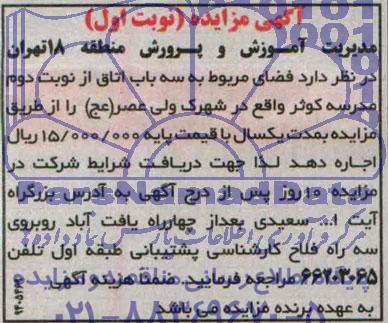 آگهی مزایده (نوبت اول)
مدیریت آموزش و پرورش منطقه ۱۸تهران
در نظر دارد فضای مربوط به سه باب اتاق از نوبت دوم
مدرسه کوثر واقع در شهرک ولی عصر(عج) را از طریق
مزایده بمدت یکسال با قیمت پایه ۱۵/۰۰۰/۰۰۰ ریال
اجاره دهد لذا جهت دریافت شرایط شرکت در
مزایده ۱۰روز پس از درج آگهی به آدرس بزرگراه
آیت ا.. سعیدی بعداز چهارراه یافت آباد روبروی
سه راه فلاح کارشناسی پشتیبانی طبقه اول تلفن
۶۶۲۰۳۰۶۵ مراجعه فرمایید. ضمنا هزینه آگهی
به عهده برنده مزایده می باشد
ParsNamadData
۰۲۱-۸۸۳۴۹۶۷۰